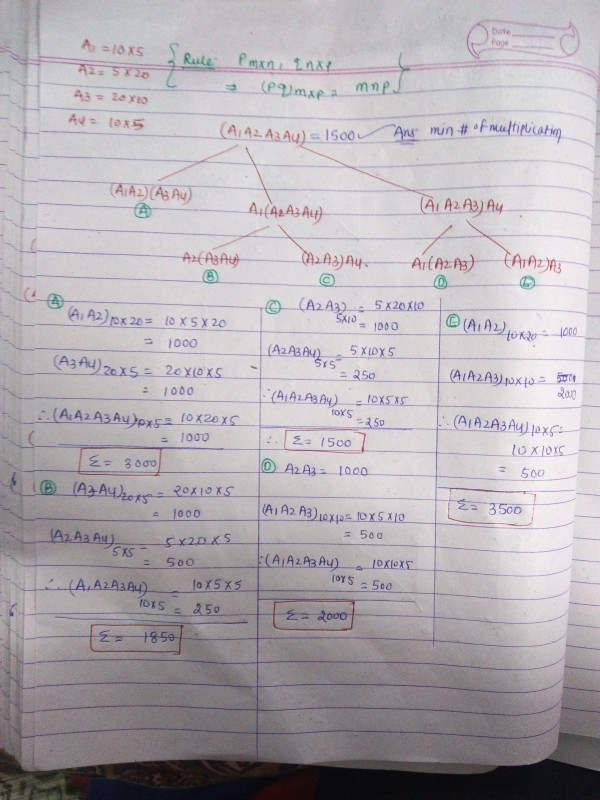 Date
Page
A1 = 10×5
A2 = 5×20
A3 = 20×10
A4 = 10×5
{ Rule: Pm×n, qn×p
⇒ (Pq)m×p = mnp }
(A1A2A3A4) = 1500 ✓ Ans: min # of multiplication
(A1A2)(A3A4)
A
A1(A2A3A4)
(A1A2A3)A4
A2(A3A4)
B
(A2A3)A4.
C
A1(A2A3)
D
(A1A2)A3
A
(A1A2)10×20 = 10×5×20
= 1000
(A3A4)20×5 = 20×10×5
= 1000
∴ (A1A2A3A4)10×5 = 10×20×5
= 1000
Σ = 3000
B (A3A4)20×5 = 20×10×5
= 1000
(A2A3A4)5×5 = 5×20×5
= 500
∴ (A1A2A3A4)10×5 = 10×5×5
= 250
Σ = 1850
C (A2A3)5×10 = 5×20×10
= 1000
(A2A3A4)5×5 = 5×10×5
= 250
∴ (A1A2A3A4)10×5 = 10×5×5
= 250
∴ Σ = 1500
D A2A3 = 1000
(A1A2A3)10×10 = 10×5×10
= 500
∴ (A1A2A3A4)10×5 = 10×10×5
= 500
Σ = 2000
E (A1A2)10×20 = 1000
(A1A2A3)10×10 =
2000
∴ (A1A2A3A4)10×5 =
10×10×5
= 500
Σ = 3500